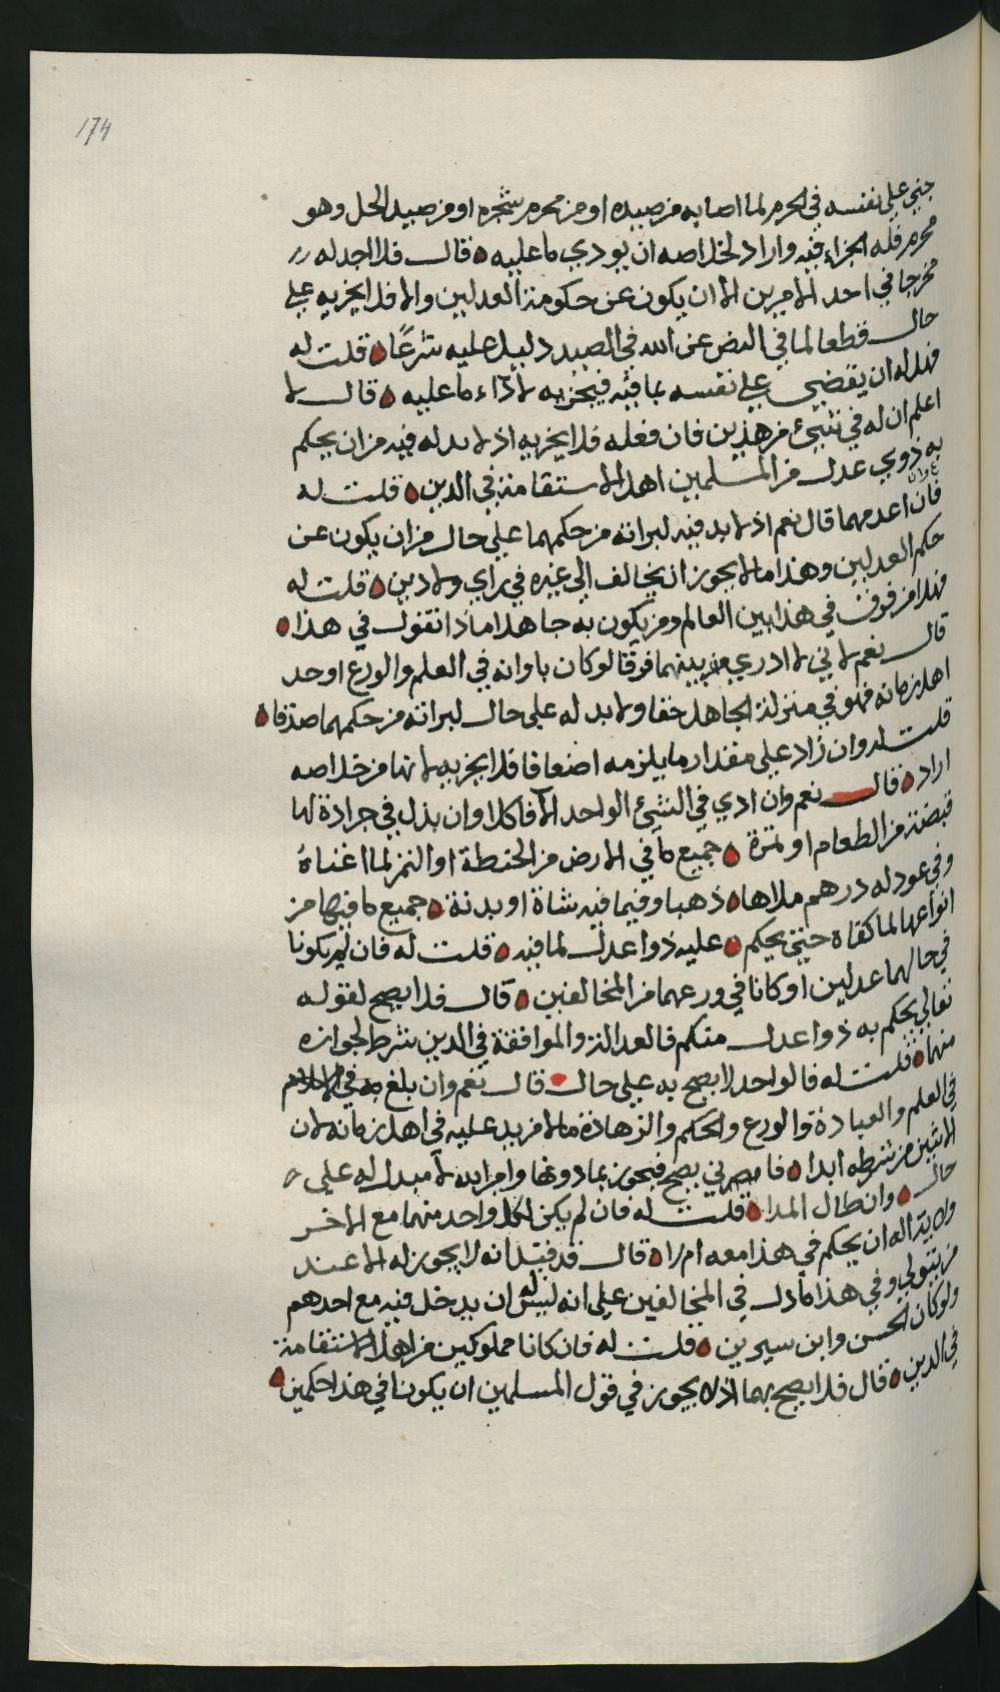 174
جني على نفسه في الحرم لما اصابه من صيده او من محرم شجره او من صيد الحل وهو
محرم فله الجزاء فيه واراد لخلاصه ان يودي ما عليه قال فلا اجد له
مخرجا في احد الامرين الا ان يكون عن حكومة العدلين والا فلا يجزيه على
حال قطعا لما في النص عن الله في الصيد دليل عليه شرعًا قلت له
فهل له ان يقضي على نفسه بما فيه فيجزيه لاداء ما عليه قال لا
اعلم ان له في شيء من هذين فان فعله فلا يجزيه اذ لا بد له فيه من ان يحكم
به ذوي عدل من المسلمين اهل الاستقامة في الدين قلت له
فان اعدمهما قال نعم اذ لا بد فيه لبراته من حكمهما على حال من ان يكون عن
حكم العدلين وهذا ما لا يجوز ان يخالف الى غيره في راي ولا دين قلت له
فهلا من فوق في هذا بين العالم ومن يكون به جاهلا ماذا تقول في هذا
قال نعم لاني لا ادري بينهما فرقا لو كان باوانه في العلم والورع اوحد
اهل زمانه فهو في منزلة الجاهل حقا ولا بد له على حال لبراته من حكمهما صدقا
قلت له وان زاد على مقدار ما يلزمه اضعافا فلا يجزيه لانها من خلاصه
اراد قال نعم وان ادي في الشيء الواحد الافا كلا وان بذل في جرادة لها
قبضة من الطعام او تمرة جميع ما في الارض من الحنطة او التمر لما اغناهُ
وفي عود له درهم ملاها ذهبا وفيما فيه شاة او بدنة جميع ما فيها من
انواعها لما كفاه حتى يحكم عليه ذوا عدل لما فيه قلت له فان لم يكونا
في حالهما عدلين او كانا في ورعهما من المخالفين قال فلا يصح لقوله
تعالى يحكم به ذوا عدل منكم فالعدالة والموافقة في الدين شرط لجوازه
منهما قلت له فالواحد لا يصح به على حال قال نعم وان بلغ به في
في العلم والعبادة والورع والحكم والزهادة ما لا مزيد عليه في اهل زمانه لان
الاثنين من شرطه ابدا فاصبرني يصح فيجوز بما دونها وامر الله لا مبدل له على
حال وان طال المدا قلت له فان لم يكن لكل واحد منهما مع الاخر
ولاية اله ان يحكم في هذا معه ام لا قال قد قيل انه لا يجوز له الا عند
من يتولي وفي هذا ما دل في المخالفين على انه ليس له ان يدخل فيه مع احدهم
ولو كان الحسن وابن سيرين قلت له فان كانا مملوكين من اهل الاستقامة
في الدين قال فلا يصح بهما اذ لا يجوز في قول المسلمين ان يكونا في هذا حكمين